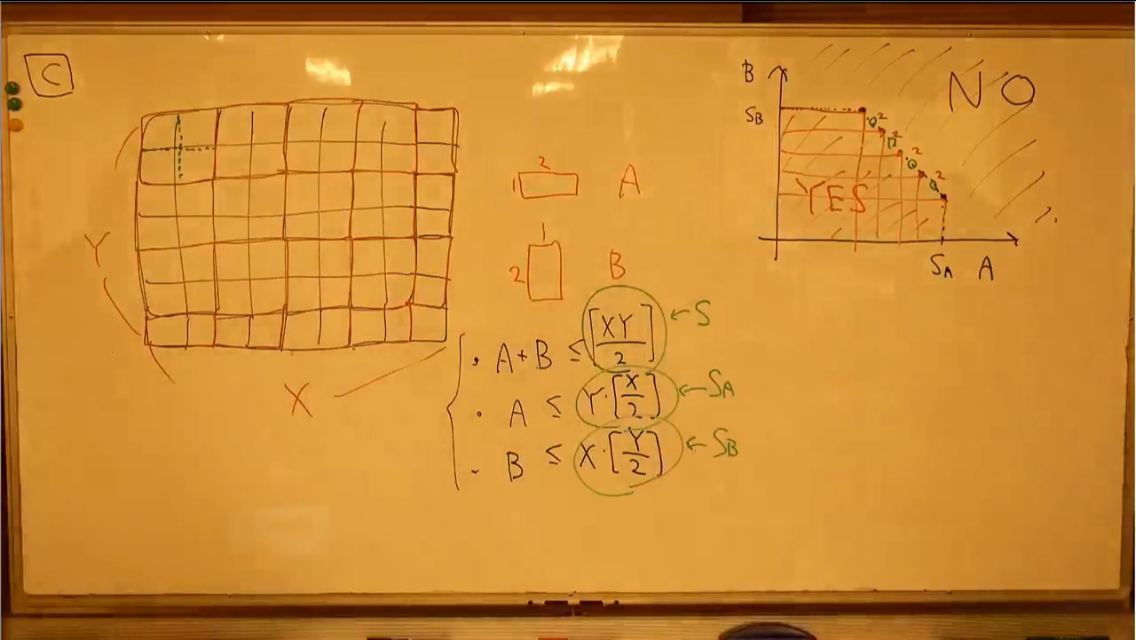 C
Y
X
2
1
A
1
2
B
• A + B ≤ [XY/2] ← S
• A ≤ Y·[X/2] ← SA
• B ≤ X·[Y/2] ← SB
B
SB
NO
YES
SA A